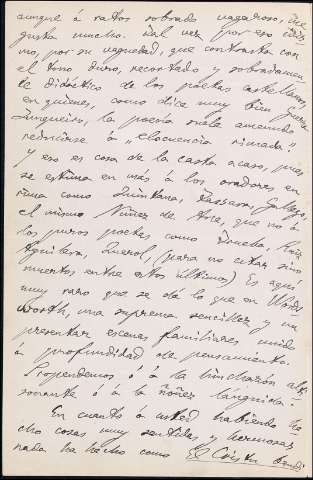 aunque á ratos sobrado vagaroso, me
gusta mucho. Tal vez por eso mis-
mo, por su vaguedad, que contrasta con
el tono duro, recortado y sobradamen-
te didáctico de los poetas castellanos,
en quienes, como dice muy bien Guerra
Junqueiro, la poesía suele amenudo
reducirse á "elocuencia rimada",
y eso es cosa de la casta acaso, pues
se estima en más á los oradores en
rima como Quintana, Gallego,
el mismo Núñez de Arce, que no á
los puros poetas como Trueba, Ruiz
Aguilera, Querol, (para no citar sino
muertos entre estos últimos) Es aquí
muy raro que se dá lo que en Words
worth, una suprema sencillez y un
presentar escenas familiares unido
á profundidad de pensamiento.
Propendemos ó á la hinchazón alti-
sonante ó á la ñoñez lánguida.
En cuanto á usted habiendo he-
cho cosas muy sentidas y hermosas
nada ha hecho como El Cristu